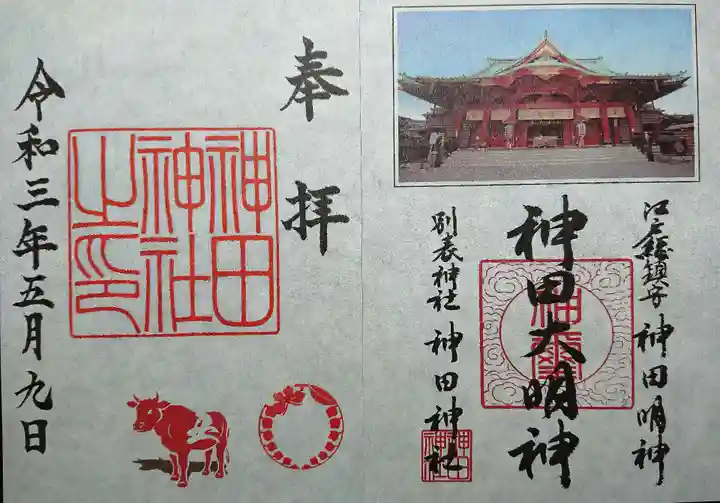 江戸総鎮守 神田明神
神田大明神
別表神社 神田神社
神田
神社
奉拝
神田
神社
之印
令和三年五月九日